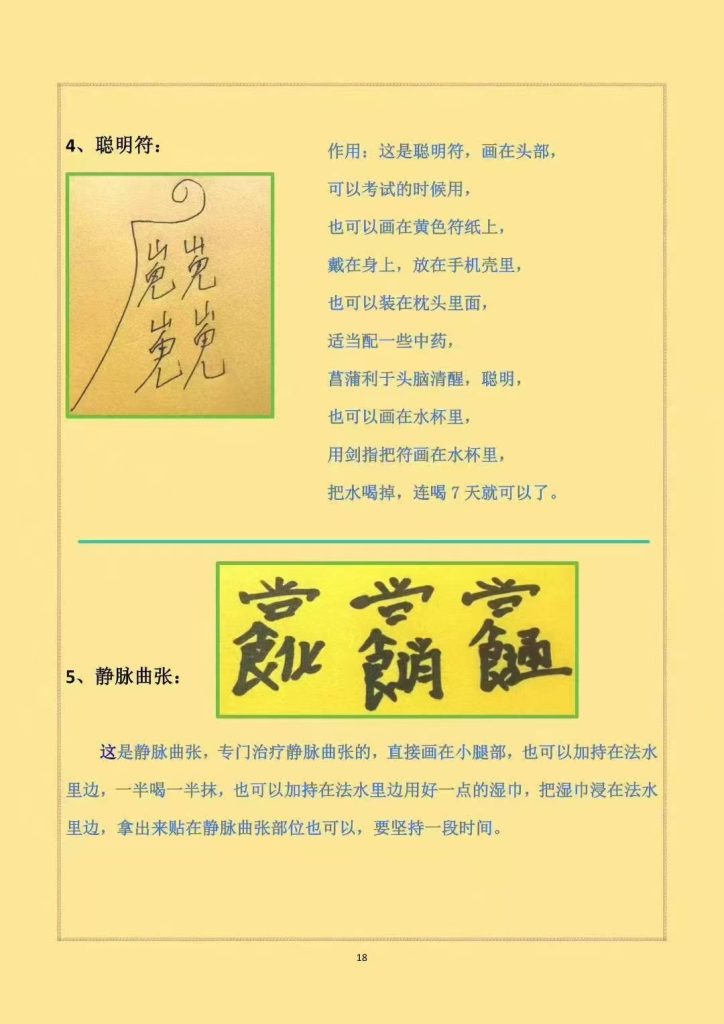 4、聪明符：
作用：这是聪明符，画在头部，
可以考试的时候用，
也可以画在黄色符纸上，
戴在身上，放在手机壳里，
也可以装在枕头里面，
适当配一些中药，
菖蒲利于头脑清醒，聪明，
也可以画在水杯里，
用剑指把符画在水杯里，
把水喝掉，连喝 7 天就可以了。
5、静脉曲张：
这是静脉曲张，专门治疗静脉曲张的，直接画在小腿部，也可以加持在法水
里边，一半喝一半抹，也可以加持在法水里边用好一点的湿巾，把湿巾浸在法水
里边，拿出来贴在静脉曲张部位也可以，要坚持一段时间。
18